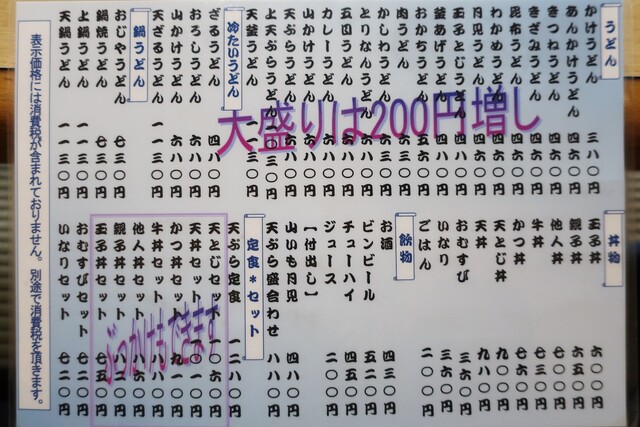 うどん
かけうどん 三八〇円
あんかけうどん 四六〇円
きつねうどん 四六〇円
きざみうどん 四六〇円
昆布うどん 四六〇円
わかめうどん 四六〇円
月見うどん 四六〇円
玉子とじうどん 四八〇円
釜あげうどん 四八〇円
おかちうどん 五六〇円
肉うどん 六三〇円
かしわうどん 六三〇円
とりなんうどん 六八〇円
五目うどん 六八〇円
カレーうどん 六八〇円
山かけうどん 六八〇円
天ぷらうどん 六八〇円
上天ぷらうどん 一〇三〇円
天釜うどん
大盛りは200円増し
冷たいうどん
ざるうどん 四八〇円
おろしうどん 六八〇円
山かけうどん 六八〇円
天ざるうどん 一一三〇円
鍋うどん
おじやうどん 七三〇円
鍋焼うどん 七三〇円
上鍋うどん 一一三〇円
天鍋うどん 一一三〇円
丼物
玉子丼 六〇〇円
親子丼 六五〇円
他人丼 七〇〇円
牛丼 七三〇円
かつ丼 七六〇円
天とじ丼 九〇〇円
天丼 九八〇円
おむすび 三六〇円
いなり 三六〇円
ごはん 二〇〇円
飲物
お酒 四三〇円
ビンビール 五二〇円
チューハイ 四五〇円
ジュース 二〇〇円
【付出し】
山いも月見 四八〇円
天ぷら盛合わせ 八八〇円
定食*セット
天ぷら定食 一二八〇円
天とじセット
天丼セット
かつ丼セット
牛丼セット
他人丼セット
親子丼セット
玉子丼セット 七五〇円
ぶっかけもできます
おむすびセット 七二〇円
いなりセット 七二〇円
表示価格には消費税が含まれておりません。別途で消費税を頂きます。